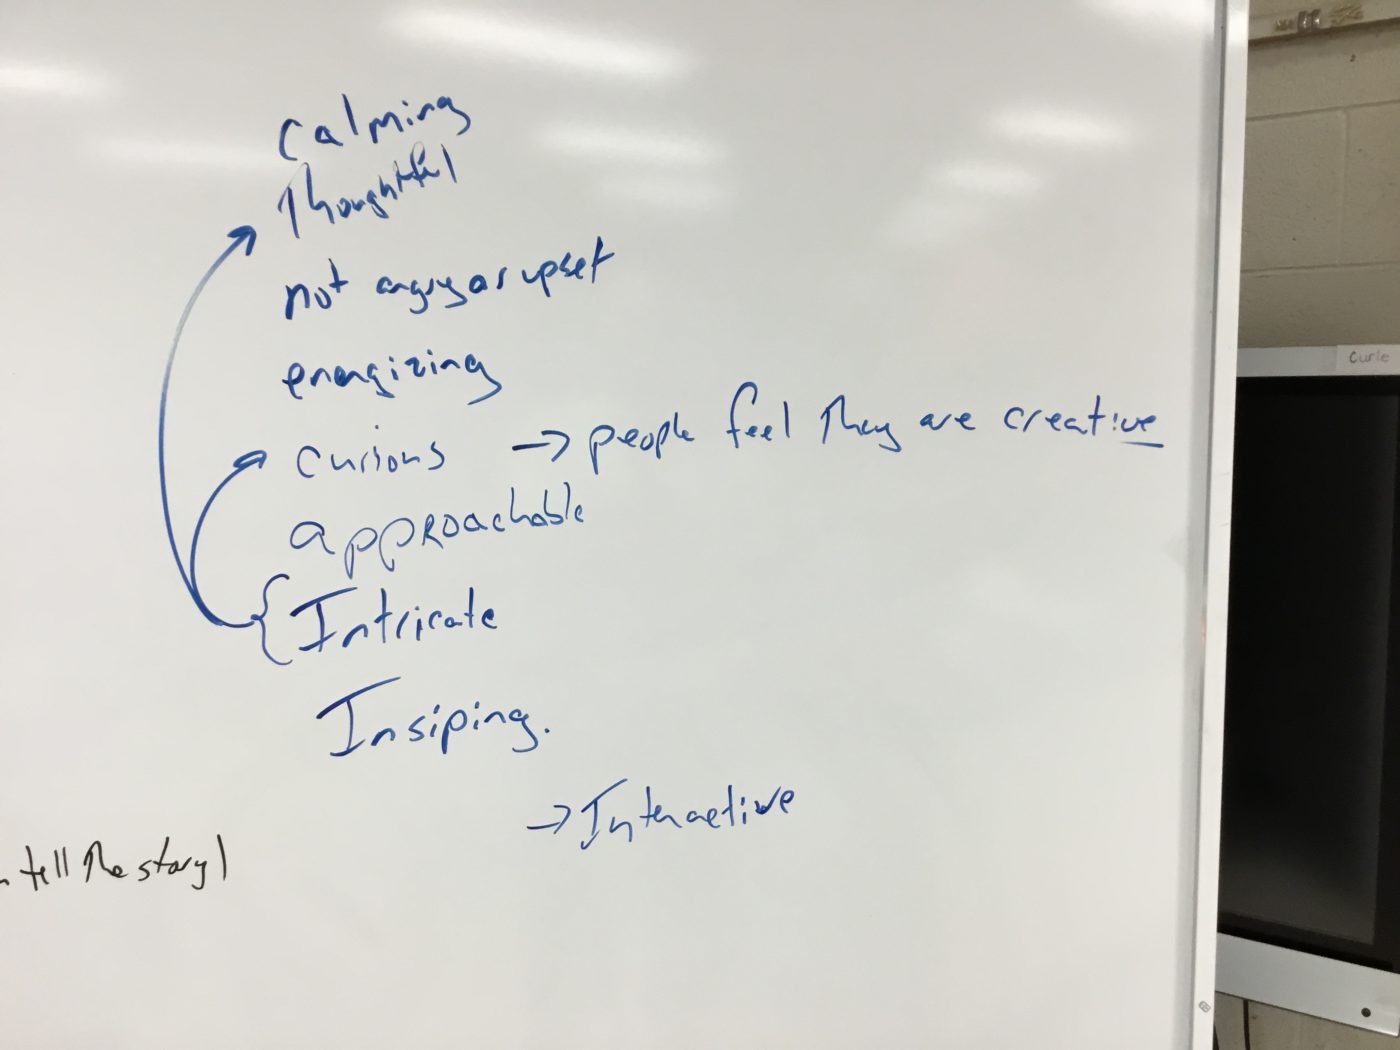 Calming
Thoughtful
not angry or upset
energizing
curious → people feel they are creative
approachable
{Intricate
Insiping.
→ Interactive
tell the story)
Curle